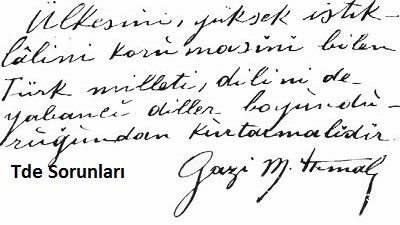 Ülkesini, yüksek istik-
lâlini korumasini bilen
Türk milleti, dilini de
yabancı diller boyundu-
ruğundan kurtarmalidir.
Tde Sorunları
Gazi M. Kemal